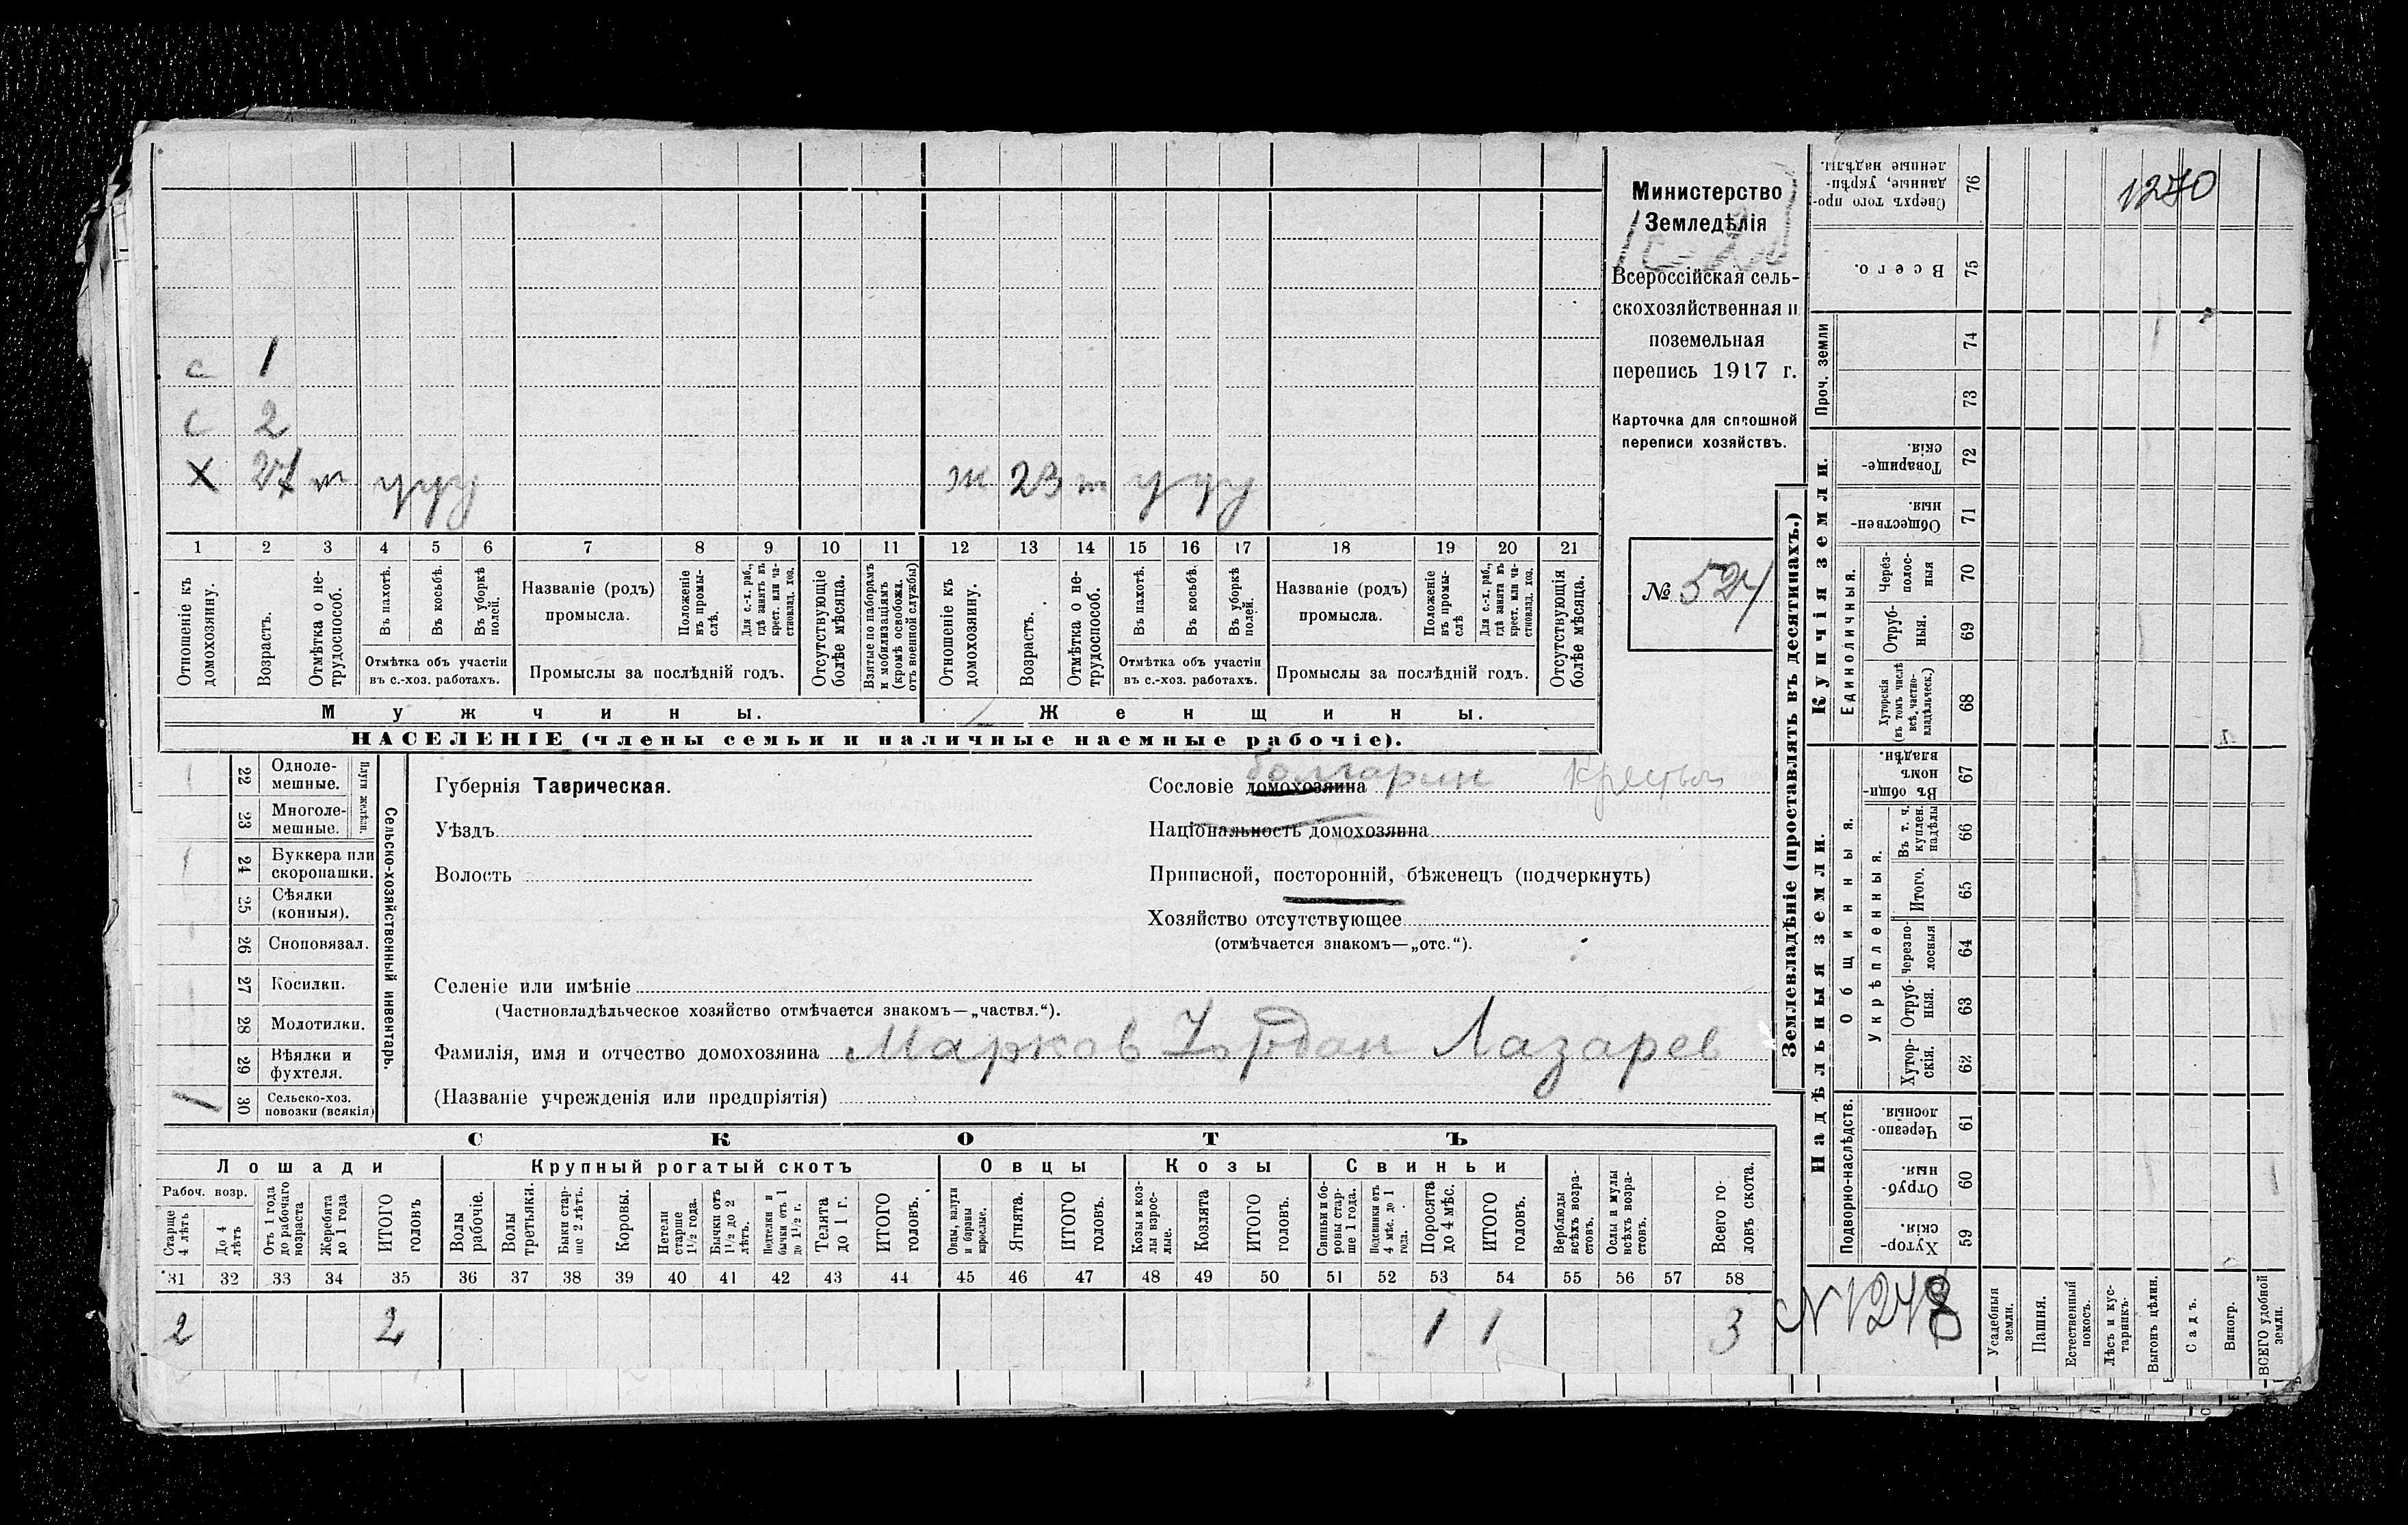 с 1
с 2
Х 27 т у у у ж 23 т у у у
1 2 3 4 5 6 7 8 9 10 11 12 13 14 15 16 17 18 19 20 21
Отношеніе къ домохозяину.
Возрастъ.
Отмѣтка о не-трудоспособ.
Въ пахотѣ.
Въ косьбѣ.
Въ уборкѣ полей.
Отмѣтка объ участіи въ с.-хоз. работахъ.
Названіе (родъ) промысла.
Положеніе въ промы-слѣ.
Для с.-х. раб., гдѣ занятъ въ крест. или ча-стновлад. хоз.
Промыслы за послѣдній годъ.
Отсутствующіе болѣе мѣсяца.
Взятые по наборамъ и мобилизаціямъ (кромѣ освобожд. отъ военной службы)
Отношеніе къ домохозяину.
Возрастъ.
Отмѣтка о не-трудоспособ.
Въ пахотѣ.
Въ косьбѣ.
Въ уборкѣ полей.
Отмѣтка объ участіи въ с.-хоз. работахъ.
Названіе (родъ) промысла.
Положеніе въ промы-слѣ
Для с.-х. раб., гдѣ занята въ крест. или ча-стновлад. хоз.
Промыслы за послѣдній годъ.
Отсутствующія болѣе мѣсяца.
Мужчины. Женщины.
НАСЕЛЕНІЕ (члены семьи и наличные наемные рабочіе).
Министерство
Земледѣлія
Всероссійская сель-
скохозяйственная и
поземельная
перепись 1917 г.
Карточка для сплошной
переписи хозяйствъ.
№ 527
22 Одноле-мешные.
23 Многоле-мешные.
Плуги желѣзн.
24 Буккера или скоропашки.
25 Сѣялки (конныя).
26 Сноповязал.
27 Косилки.
28 Молотилки.
29 Вѣялки и фухтеля.
1 30 Сельско-хоз. повозки (всякія)
Сельско-хозяйственный инвентарь.
Губернія Таврическая.
Уѣздъ
Волость
Селеніе или имѣніе
(Частновладѣльческое хозяйство отмѣчается знакомъ—„частвл.“).
Фамилія, имя и отчество домохозяина Марков Іордан Лазарев
(Названіе учрежденія или предпріятія)
болгарин
Сословіе домохозяина Крестьян
Національность домохозяина
Приписной, посторонній, бѣженецъ (подчеркнуть)
Хозяйство отсутствующее
(отмѣчается знакомъ—„отс.“).
СКОТЪ
Лошади Крупный рогатый скотъ Овцы Козы Свиньи
Рабоч. возр.
Старше 4 лѣтъ
До 4 лѣтъ
Отъ 1 года до рабочаго возраста
Жеребята до 1 года
ИТОГО головъ
Волы рабочіе.
Волы третьяки.
Быки стар-ше 2 лѣтъ.
Коровы.
Нетели старше 1½ года.
Бычки отъ 1½ до 2 лѣтъ.
Подтелки и бычки отъ 1 до 1½ г.
Телята до 1 г.
ИТОГО головъ.
Овцы, валухи и бараны взрослые.
Ягнята.
ИТОГО головъ.
Козы и коз-лы взрос-лые.
Козлята
ИТОГО головъ.
Свиньи и бо-ровы стар-ше 1 года.
Подсвинки отъ 4 мѣс. до 1 года.
Поросята до 4 мѣс.
ИТОГО головъ.
Верблюды всѣхъ возра-стовъ.
Ослы и мулы всѣхъ возра-стовъ.
Всего го-ловъ скота.
31 32 33 34 35 36 37 38 39 40 41 42 43 44 45 46 47 48 49 50 51 52 53 54 55 56 57 58
2 2 1 1 3
Землевладѣніе (проставлять въ десятинахъ.)
Надѣльныя земли. Купчія земли. Проч. земли
Подворно-наслѣдств. Общинныя. Единоличныя.
Укрѣпленныя.
Хутор-скія. 59
Отруб-ныя. 60
Черезпо-лосныя. 61
Хутор-скія. 62
Отруб-ныя. 63
Черезпо-лосныя 64
Итого. 65
Въ т. ч. куплен. надѣлы 66
Въ общи-номъ владѣн. 67
Хуторскія (въ томъ числѣ всѣ частно-владѣльческ.) 68
Отруб-ныя. 69
Через-полос-ныя 70
Обществен-ныя. 71
Товарище-скія. 72
73
74
Всего. 75
Сверхъ того про-данные, укрѣп-ленные надѣлы. 76
1270
N 1248
Усадебныя земли.
Пашня.
Естественный покосъ.
Лѣсъ и кус-тарникъ.
Выгонъ цѣлин.
Садъ.
Виногр.
ВСЕГО удобной земли.